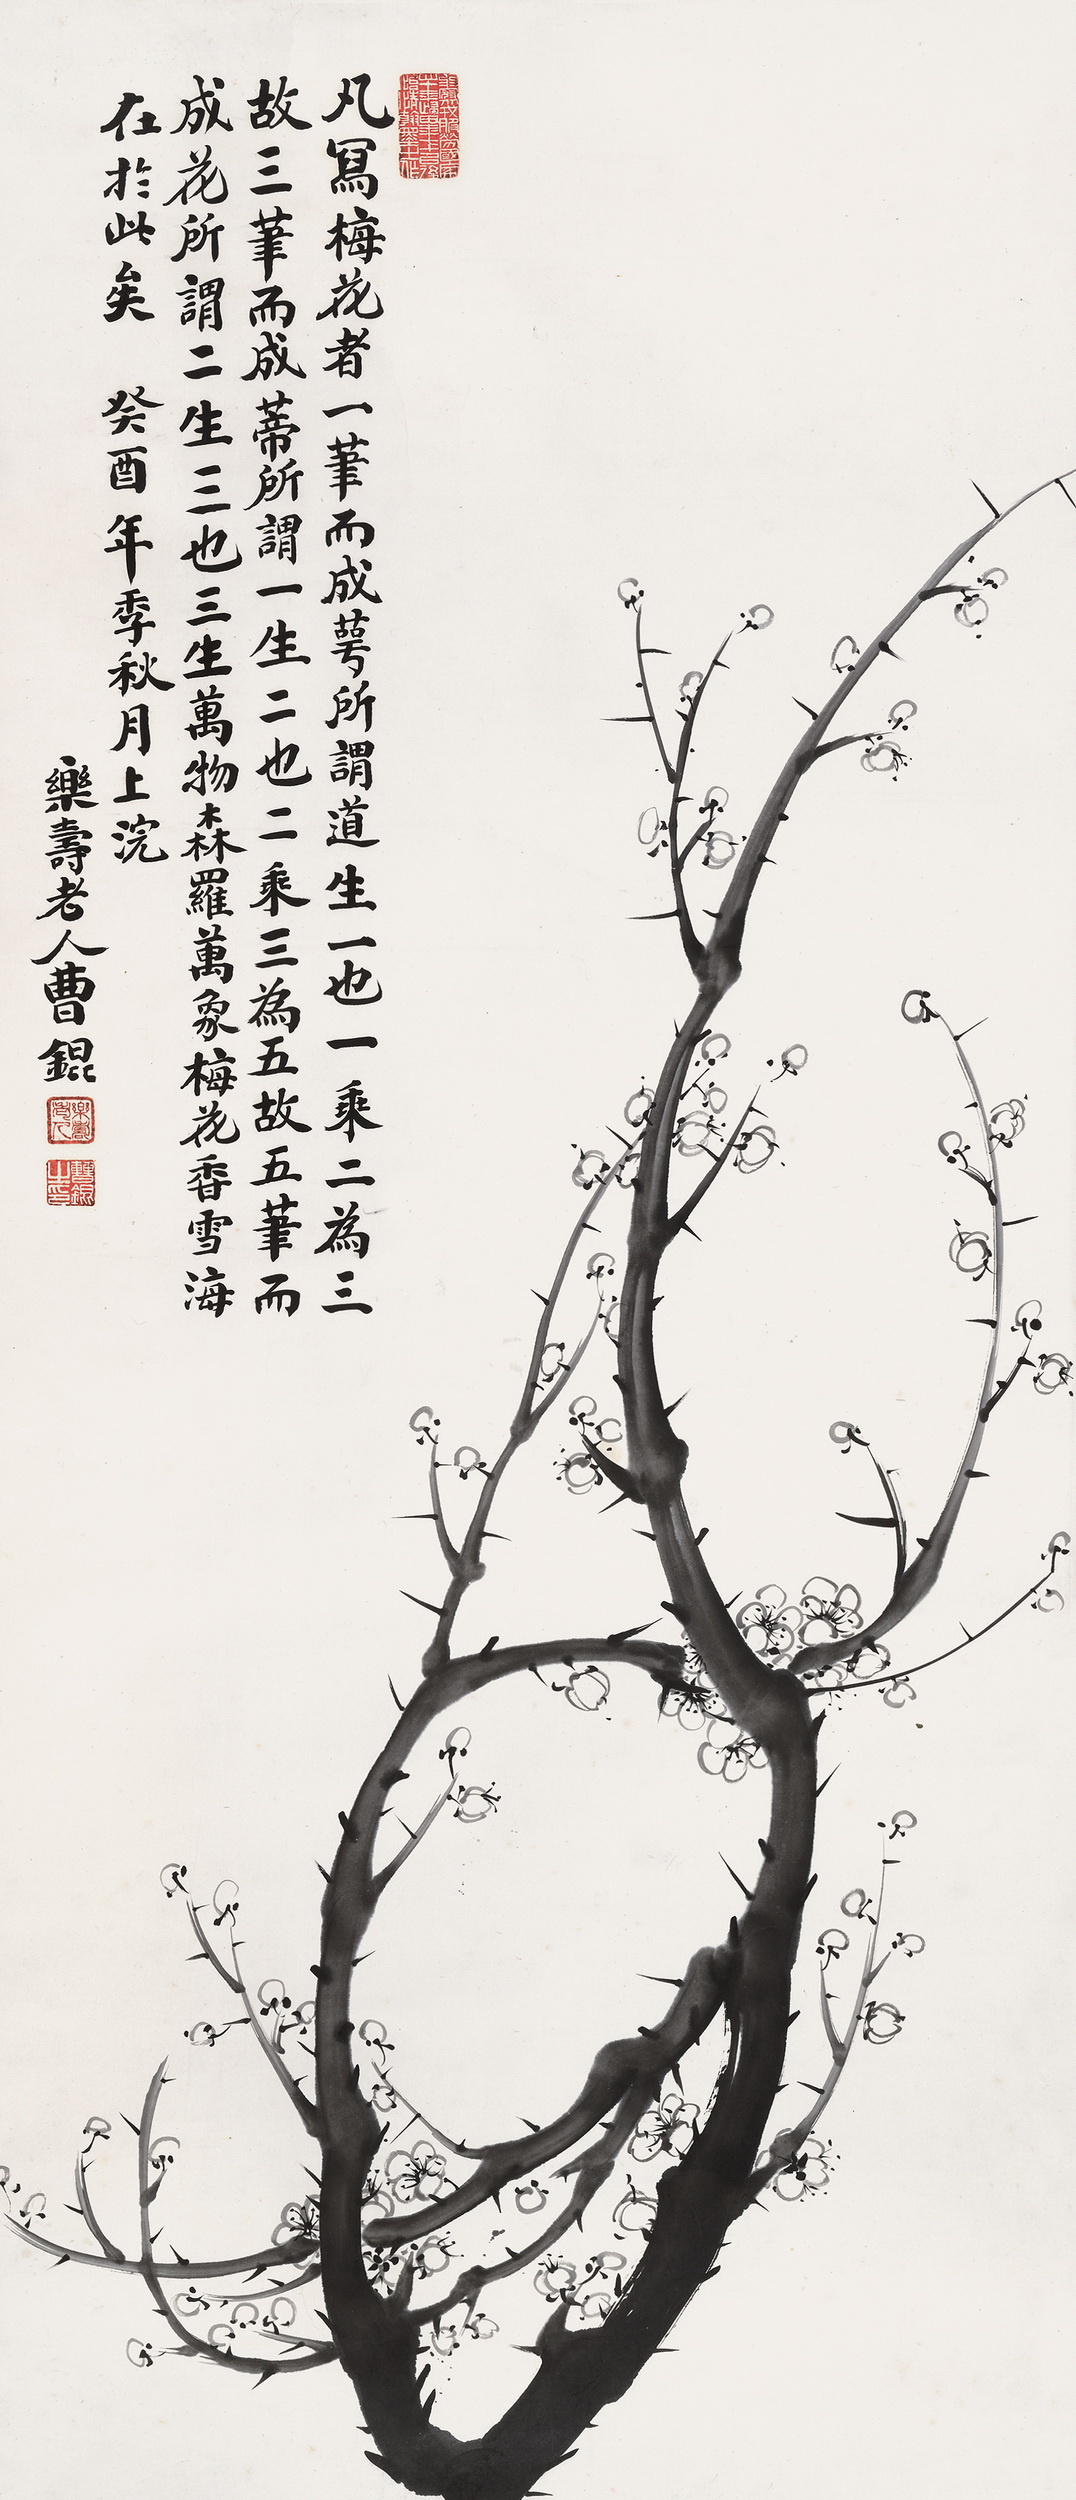 凡寫梅花者一筆而成萼所謂道生一也一乘二為三
故三筆而成蒂所謂一生二也二乘三為五故五筆而
成花所謂二生三也三生萬物森羅萬象梅花香雪海
在於此矣 癸酉年季秋月上浣
樂壽老人曹錕
樂壽老人
曹錕之印